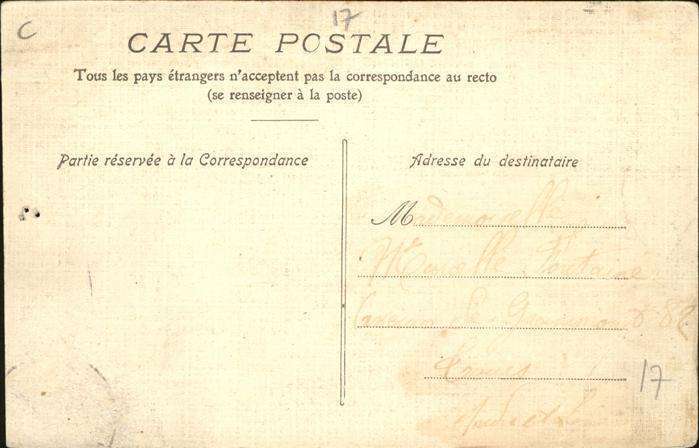 C
17
CARTE POSTALE
Tous les pays étrangers n'acceptent pas la correspondance au recto
(se renseigner à la poste)
Partie réservée à la Correspondance
Adresse du destinataire
Mademoiselle
17